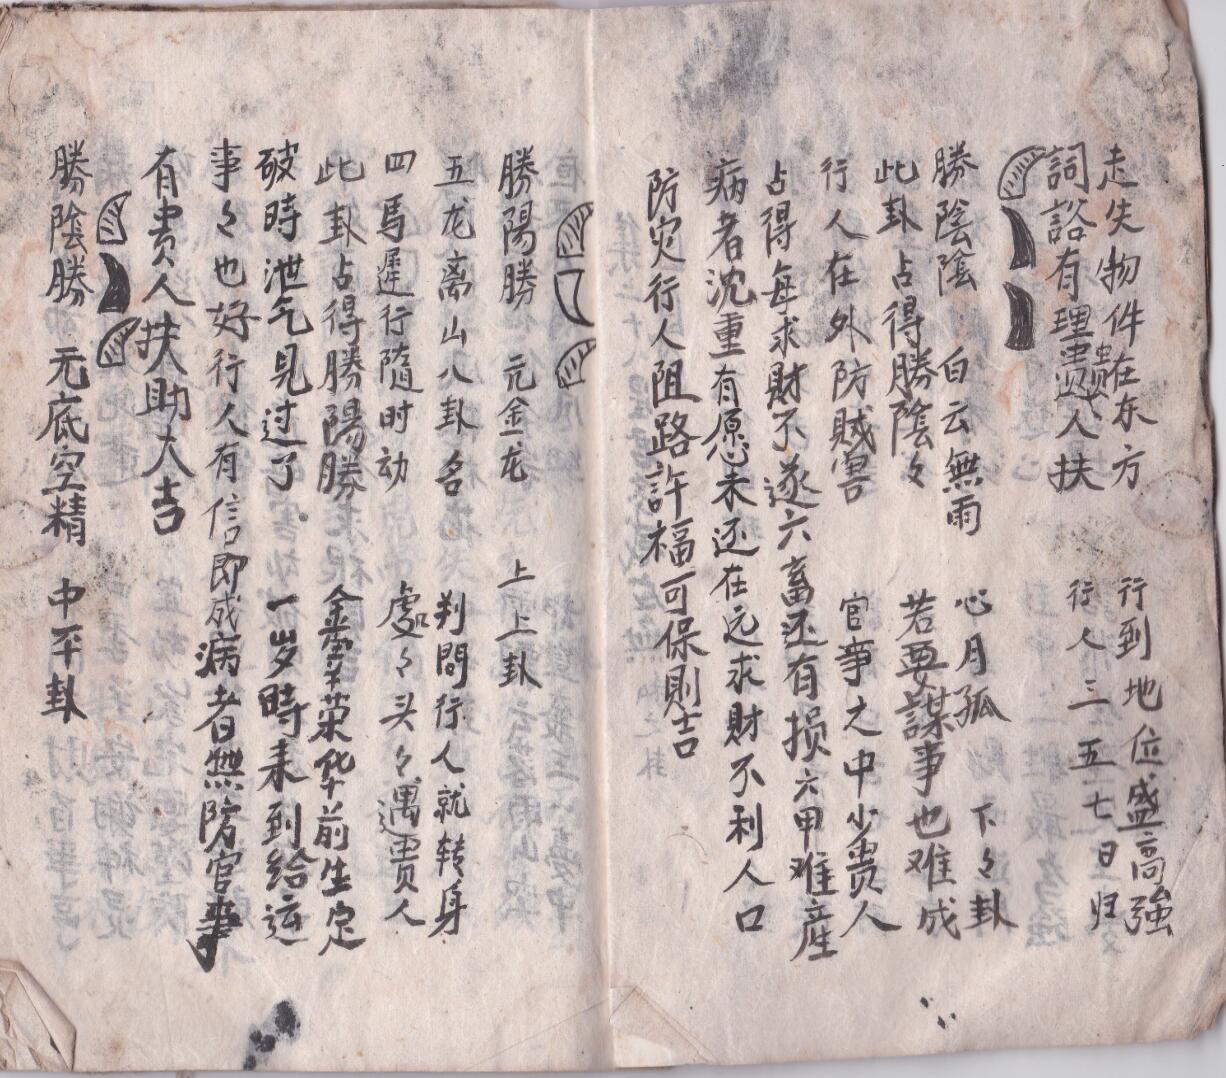 走失物件在东方 行到地位盛高強
詞訟有理貴人扶 行人三五七日归
勝陰陰 白云無雨 心月孤 下々卦
此卦占得勝陰々 若要謀事也难成
行人在外防賊害 官事之中小貴人
占得每求財不遂 六畜还有损六甲难産
病者沈重有愿未还在远求財不利人口
防灾行人阻路許福可保則吉
勝陽勝 元金龙 上上卦
五龙离山八卦名 判問行人就转身
四馬遲行隨时动 處々头々遇贵人
此卦占得勝陽勝 金家荣华前生定
破時泄气見过了 一岁時来到给运
事々也好行人有信即成病者無防官事
有贵人扶助大吉
勝陰勝 元底空精 中平卦